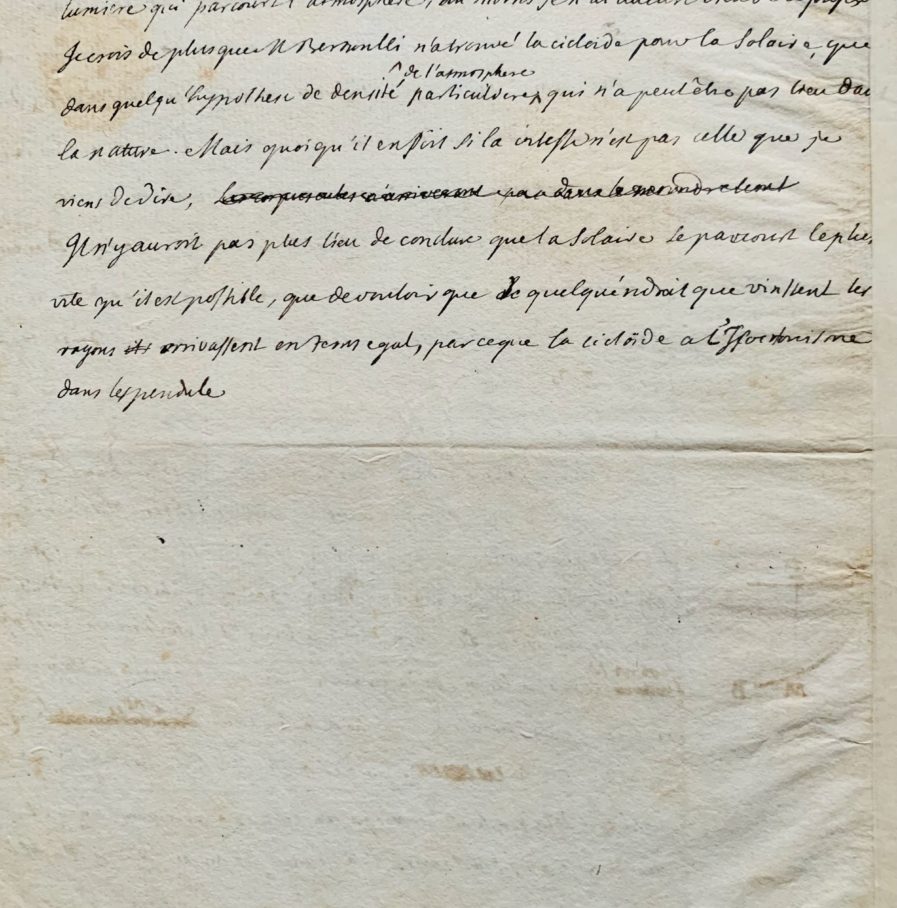 lumiere qui parcourt l'atmosphere, au moins je n'ai aucun
Je crois de plus que M Bernoulli n'a trouvé la cicloide pour la Solaire, que
dans quelqu'hypothese de densité ^ de l'atmosphere particuliere, qui n'a peut être pas lieu dan
la nature. Mais quoi qu'il en soit si la vitesse n'est pas celle que je
viens de dire,
Il n'y auroit pas plus lieu de conclure que la Solaire se parcourt le plus
vite qu'il est possible, que de vouloir que de quelqu'endroit que vinssent les
rayons ils arrivassent en tems egal, parce que la cicloïde a l'Isochronisme
dans les pendule